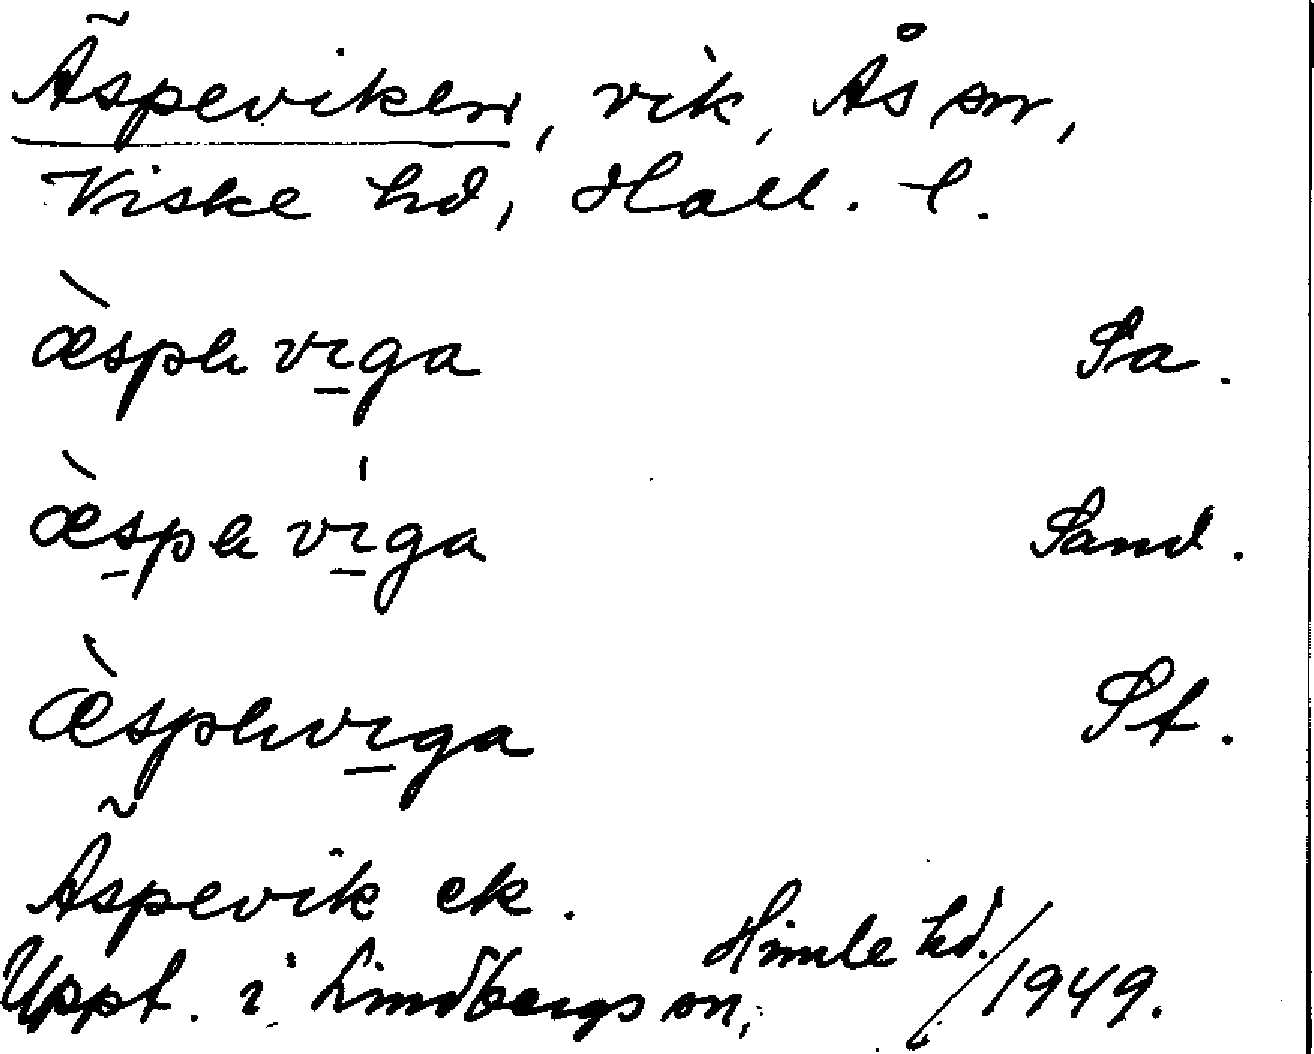 Äspeviken, vik, Ås sn,
Viske hd, Hall. l.
æ̀spɐ vɪ̱ga Sa.
æ̀s̱pɐ vɪ̱́ga Sand.
æ̀spɐvɪ̱ga St.
Äspevik ek.
Uppt. i Lindbergs sn, Himle hd./1949.